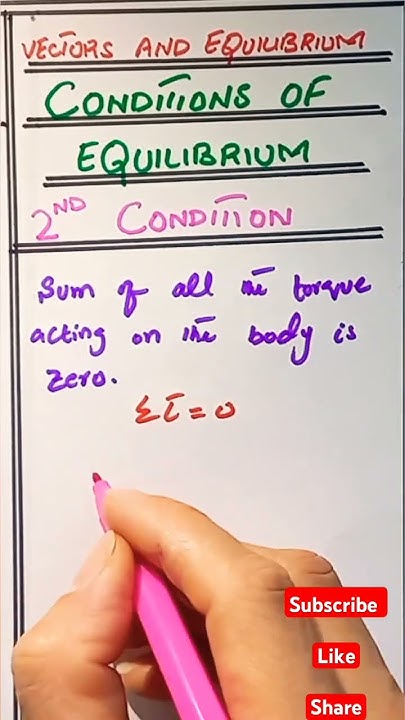 VECTORS AND EQUILIBRIUM
CONDITIONS OF
EQUILIBRIUM
2ND CONDITION
Sum of all the torque
acting on the body is
zero.
Στ = 0
Subscribe
Like
Share